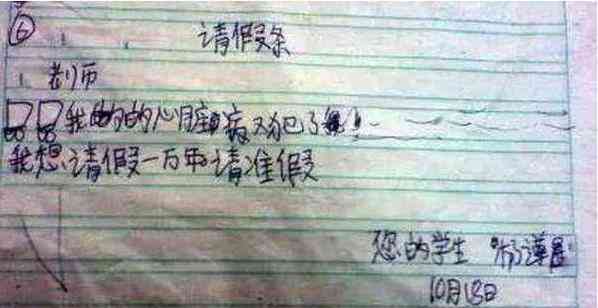 ⑥
请假条
老师
我的的心脏病又犯了
我想请假一万年请准假
您的学生
10月13日